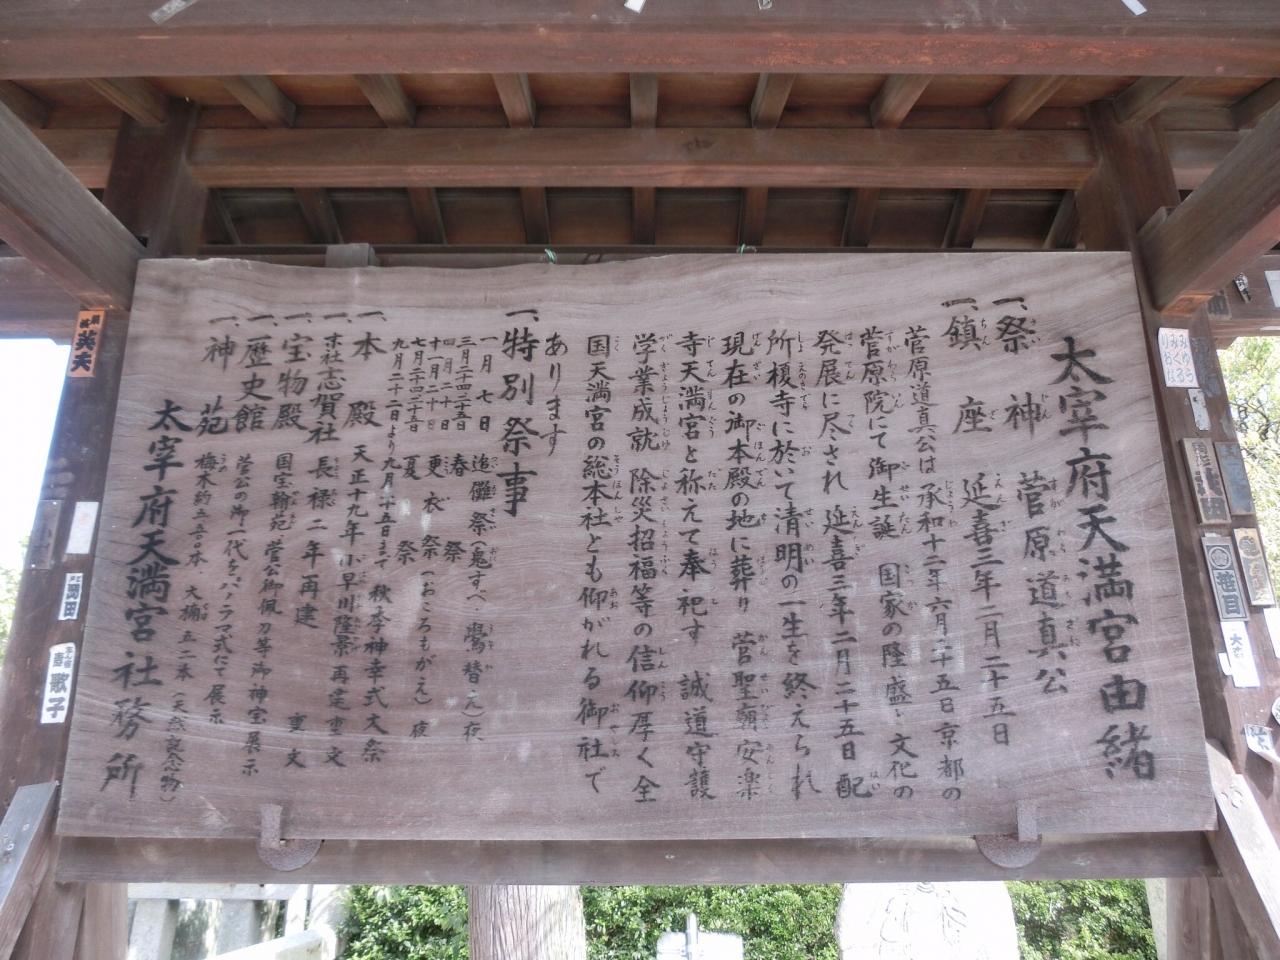 太宰府天満宮由緒
一、祭神 菅原道真公
一、鎮座 延喜三年二月二十五日
菅原道真公は承和十二年六月二十五日京都の
菅原院にて御生誕 国家の隆盛、文化の
発展に尽され 延喜三年二月二十五日 配
所榎寺に於いて清明の一生を終えられ
現在の御本殿の地に葬り 菅聖廟安楽
寺天満宮と称えて奉祀す 誠道守護
学業成就 除災招福等の信仰厚く全
国天満宮の総本社とも仰がれる御社で
あります
一、特別祭事
一月七日 追儺祭(鬼すべ 鷽替え)夜
三月二十四二十五日 春祭
四月二十日
十一月二十日 更衣祭(おころもがえ)夜
七月二十四二十五日 夏祭
九月二十二日より九月二十五日まで 秋季神幸式大祭
一、本殿 天正十九年 小早川隆景 再建 重文
一、末社志賀社 長禄二年再建 重文
一、宝物殿 国宝翰苑 菅公御佩刀等御神宝展示
一、歴史館 菅公の御一代をパノラマ式にて展示
一、神苑 梅木約五百本 大樟五二本(天然記念物)
太宰府天満宮社務所
英夫
羽田
歌子
みゆう
みくろ
りおな
笹目